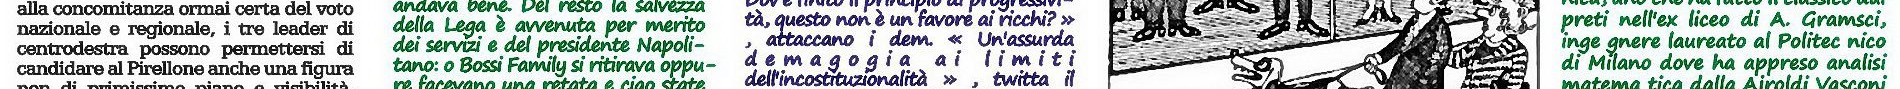 alla concomitanza ormai certa del voto
nazionale e regionale, i tre leader di
centrodestra possono permettersi di
candidare al Pirellone anche una figura
non di primissimo piano e visibilità.
andava bene. Del resto la salvezza
della Lega è avvenuta per merito
dei servizi e del presidente Napoli-
tano: o Bossi Family si ritirava oppu-
re facevano una retata e ciao state
Dov'è finito il principio di progressivi-
tà, questo non è un favore ai ricchi? »
, attaccano i dem. « Un'assurda
demagogia ai limiti
dell'incostituzionalità » , twitta il
preti nell'ex liceo di A. Gramsci,
inge gnere laureato al Politec nico
di Milano dove ha appreso analisi
matema tica dalla Airoldi Vasconi